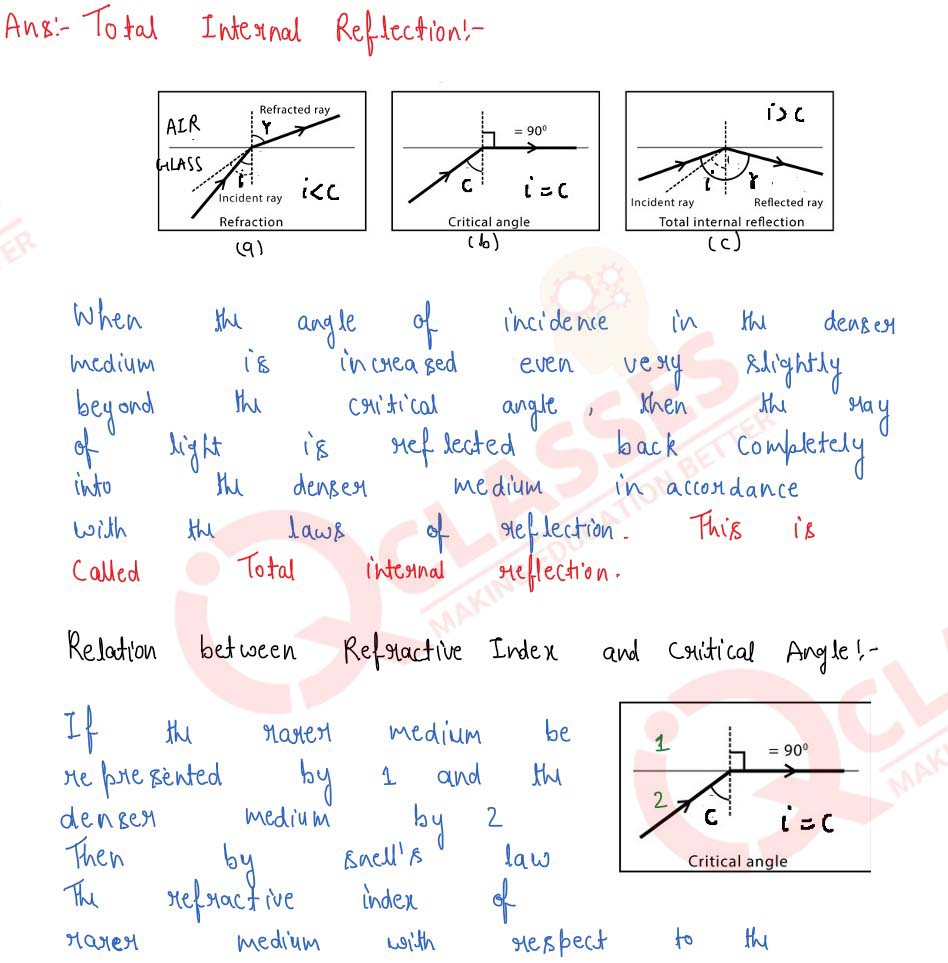 Ans:- Total Internal Reflection:-
AIR
GLASS
Refracted ray
r
i
i<c
Incident ray
Refraction
(a)
= 90⁰
C
i=c
Critical angle
(b)
i>c
i
r
Incident ray
Reflected ray
Total internal reflection
(c)
When the angle of incidence in the denser
medium is increased even very slightly
beyond the critical angle, then the ray
of light is reflected back completely
into the denser medium in accordance
with the laws of reflection. This is
called Total internal reflection.
Relation between Refractive Index and Critical Angle:-
If the rarer medium be
represented by 1 and the
denser medium by 2
Then by snell's law
The refractive index of
rarer medium with respect to the
1
2
= 90⁰
C
i=c
Critical angle
CLASSES
MAKING EDUCATION BETTER